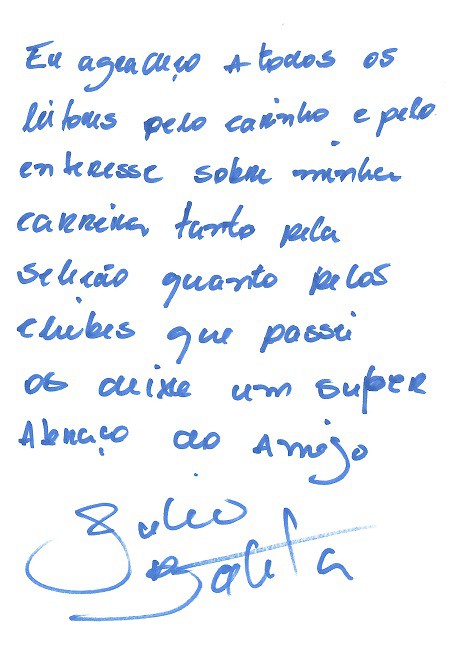 Eu agradeço A todos os
leitores pelo carinho e pelo
enteresse sobre minha
carreira, tanto pela
seleção quanto pelos
clubes que passei
os deixe um super
Abraço do Amigo
Julio
Batista